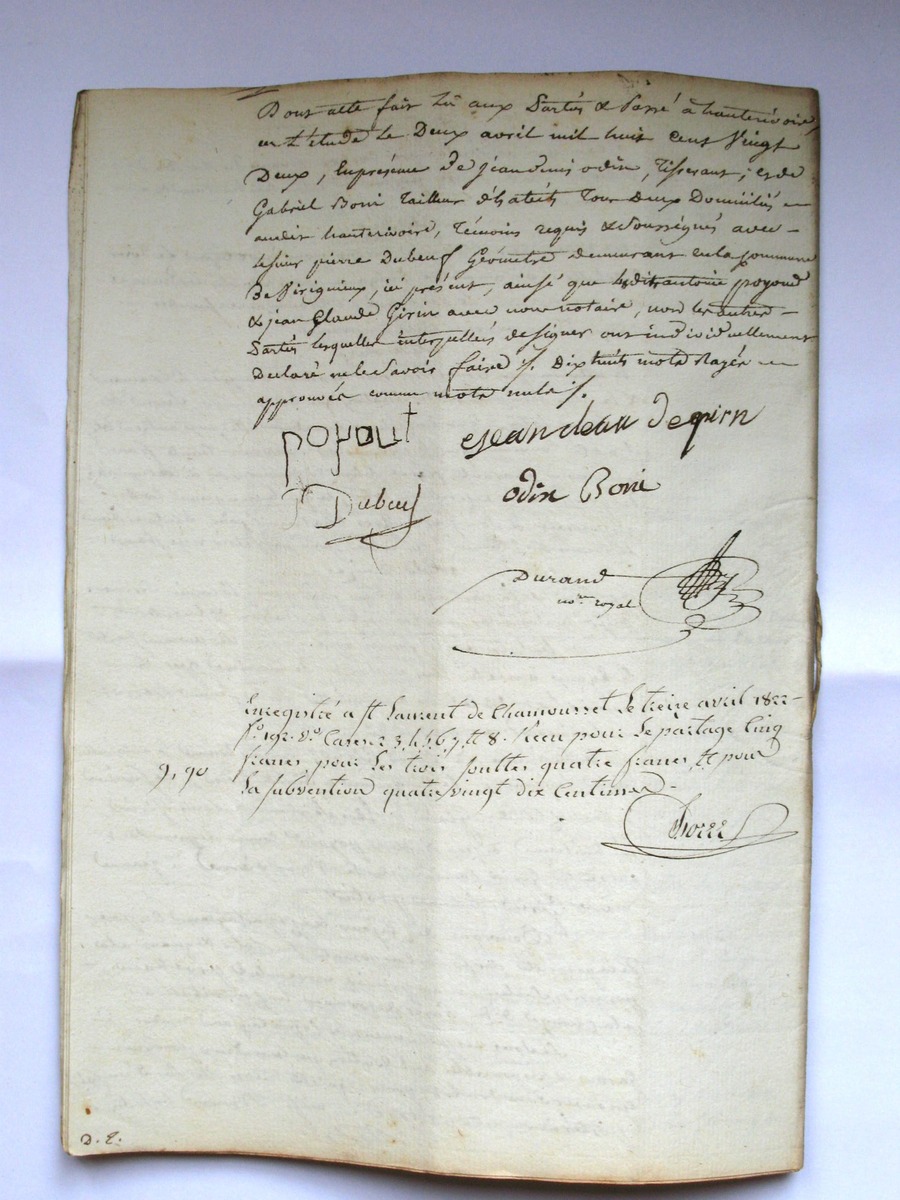 Dont acte fait lu aux Parties & Passé à hauterivoire,
en l'étude le Deux avril mil huit cent Vingt
Deux, En présence de jean denis odin, Tisserant; et de
Gabriel Boni Tailleur d'habits Tous Deux Domiciliés
audit hauterivoire, Témoins requis & Soussignés avec
le sieur pierre Dubeuf Géomètre demeurant en la Commune
De Virignieux, ici présent, ainsé que ledit antoine poyoud
& jean Claude Girin avec nous notaire, non les autres
Parties lesquelles interpellées de signer ont individuellement
Declaré ne le Savoir faire /. Dix huit mots Rayés
approuvés comme mots nuls /.
poyout ejean cleau de girn
P Dubeuf odin Boni
Durand
no.re royal
Enregistré a st Laurent de Chamousset le treize avril 1822
f.o 192. V.o Cases 2 3, 4, 5, 6, 7, et 8. Reçu pour Le partage Cinq
francs pour Les trois soultes quatre francs, et pour
9, 90
La subvention quatre vingt dix Centimes
D. E.